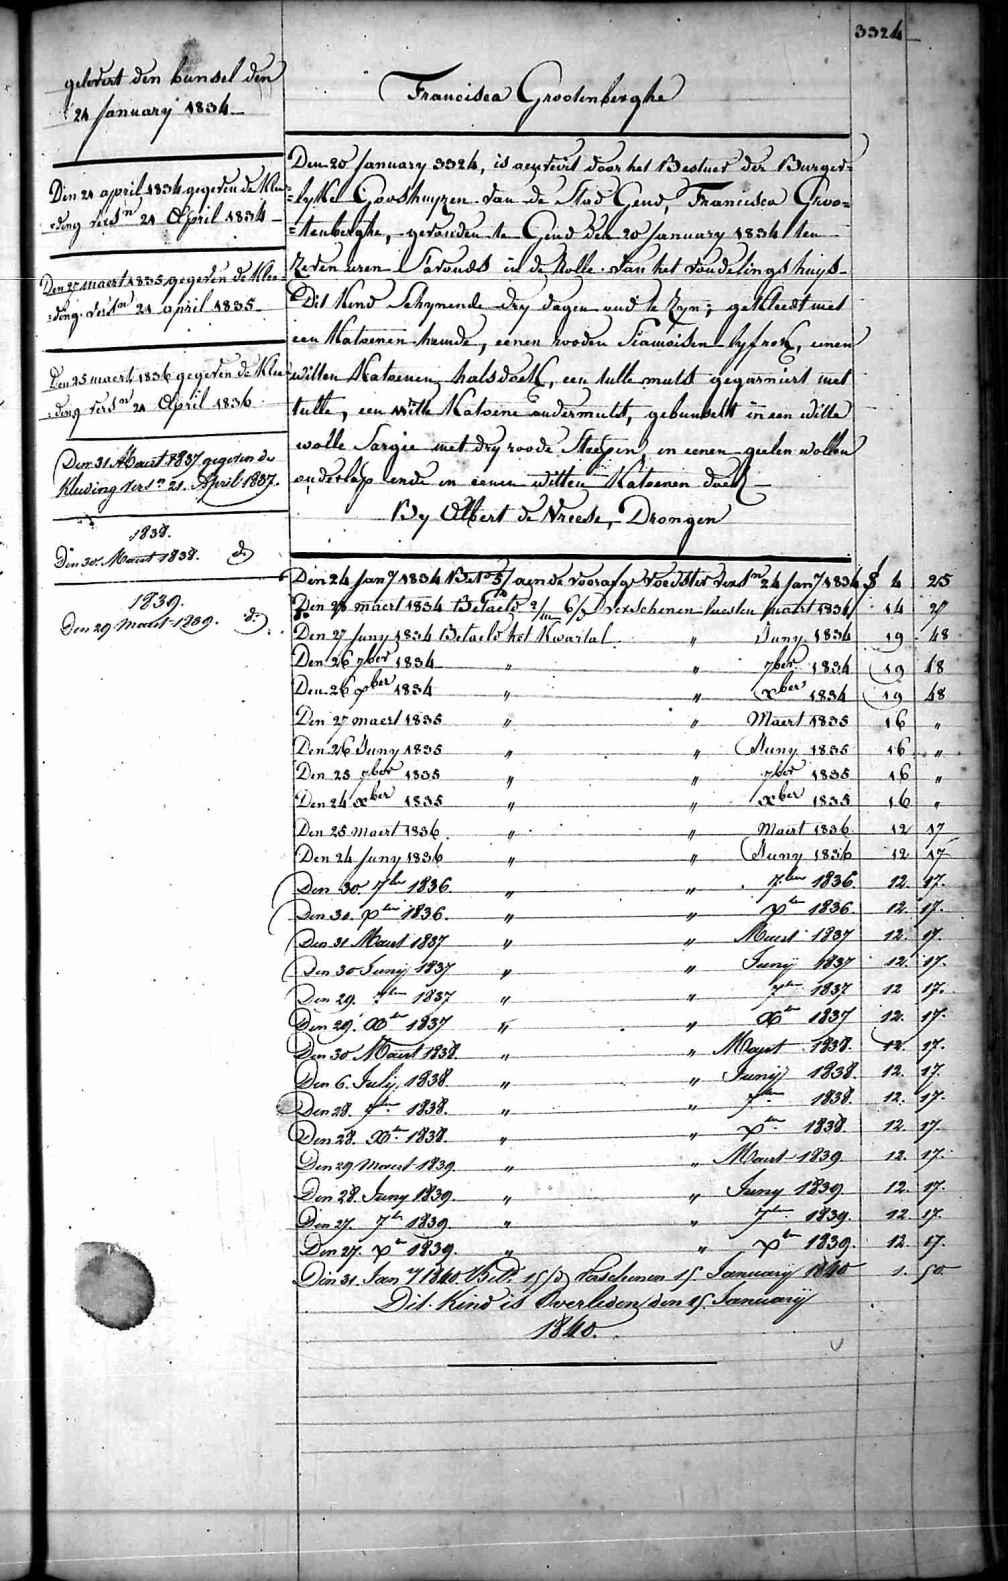 3324
gelevert den bunsel den
21 January 1834
Den 21 april 1834 gegeven de Klee-
=ding versn 21 April 1834
Den 27 maert 1835 gegeven de Klee-
=ding versn 21 april 1835
Den 25 maert 1836 gegeven de Klee-
=ding versn 21 April 1836
Den 31 Maert 1837 gegeven de
Kleeding versn 21. April 1837.
1838.
Den 30. Maert 1838. do
1839.
Den 29 Maert 1839. do
Francisca Grootenberghe
Den 20 January 3324, is aenveird door het Bestuer der Burger=
=lyke Godshuyzen van de Stad Gend, Francisca Groo=
=tenberghe, gevonden te Gend den 20 January 1834 ten
zeven uren s'avonds in de Rolle van het vondelingshuys
Dit Kind Schynende dry dagen oud te zyn; gekleedt met
een Katoenen hemde, eenen rooden Siamoisen lyfrok, eenen
witten Katoenen halsdoek, een tulle muts gegarniert met
tulle, een witte Katoene ondermuts, gebunselt in een witte
wolle Sargie met dry roode Streepen, en eenen geelen wollen
onderlap ende in eenen witten Katoenen doek
By Albert de Vreese, Drongen
Den 24 Jany 1834 Bet 5/ aen de voorafge Voedster versn 24 Jany 1834 $ 4 25
Den 28 maert 1834 Betaeld 2/m 6/d verschenen lAesten maert 1834 14 27
Den 27 Juny 1834 Betaeld het Kwartal " Juny 1834 19 48
Den 26 7ber 1834 " " 7ber 1834 19 48
Den 26 xber 1834 " " xber 1834 19 48
Den 27 maert 1835 " " Maert 1835 16 "
Den 26 Juny 1835 " " Juny 1835 16 "
Den 25 7ber 1835 " " 7ber 1835 16 "
Den 24 xber 1835 " " xber 1835 16 "
Den 25 Maert 1836 " " Maert 1836 12 17
Den 24 Juny 1836 " " Juny 1836 12 17
Den 30. 7ber 1836. " " 7ber 1836. 12. 17.
Den 30. xber 1836. " " xber 1836 12. 17.
Den 31 Maert 1837 " " Maert 1837 12. 17.
Den 30 Junij 1837 " " Junij 1837 12. 17.
Den 29. 7ber 1837 " " 7ber 1837 12 17.
Den 29. Xber 1837 " " Xber 1837 12. 17.
Den 30 Maert 1838. " " Maert 1838. 12. 17.
Den 6. Julij 1838. " " Junij 1838. 12. 17.
Den 28. 7ber 1838. " " 7ber 1838. 12. 17.
Den 28. Xber 1838. " " Xber 1838. 12. 17.
Den 29 Maert 1839 " " Maert 1839. 12. 17.
Den 28. Juny 1839. " " Juny 1839 12. 17.
Den 27. 7ber 1839. " " 7ber 1839. 12. 17.
Den 27. Xber 1839. " " Xber 1839. 12. 17.
Den 31. Jany 1840. Betd. 15/d verschenen 15 January 1840 1. 90.
Dit Kind is Overleden den 15. Januarij
1840.